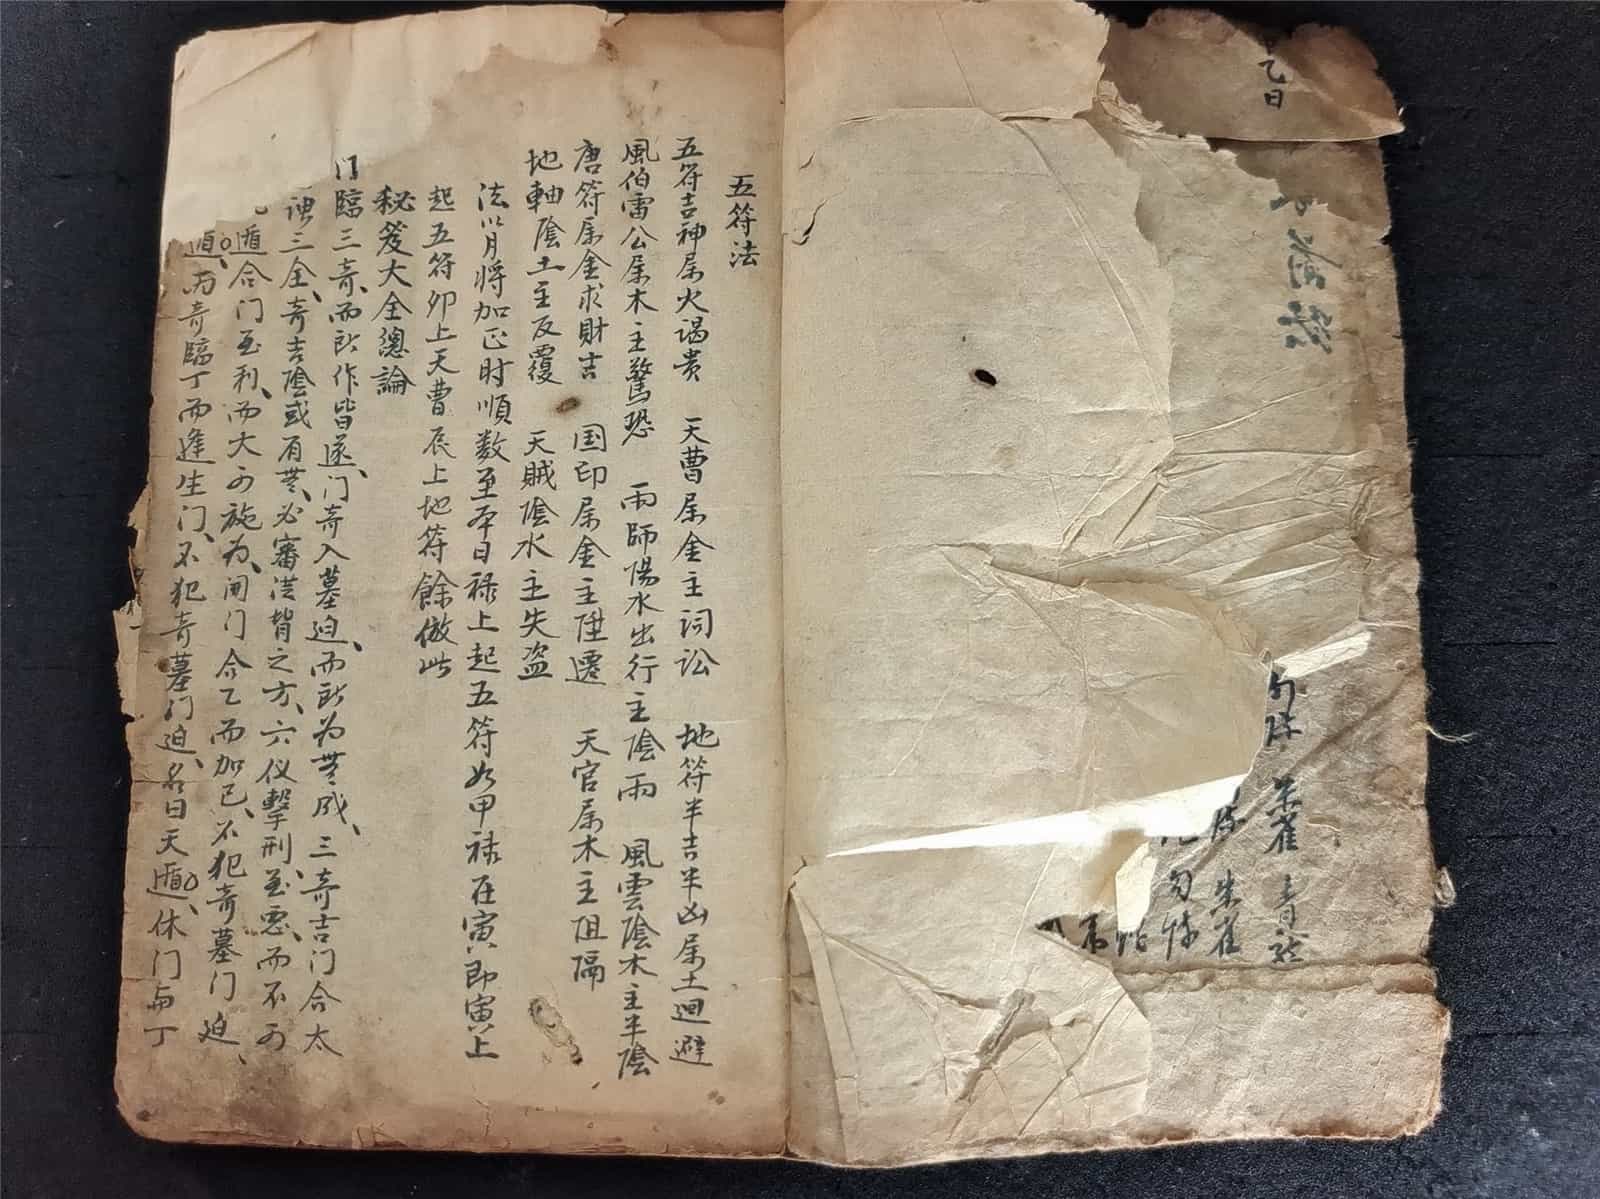 乙日
勾陳 朱雀 青龍
朱雀
勾陳
五符法
五符吉神属火謁贵 天曹属金主词讼 地符半吉半凶属土迴避
風伯雷公属木主驚恐 雨師陽水出行主陰雨 風雲陰木主半陰
唐符属金求財吉 国印属金主陞遷 天官属木主阻隔
地軸陰土主反覆 天賊陰水主失盗
法以月将加正时順数至本日禄上起五符如甲禄在寅即寅上
起五符卯上天曹辰上地符餘倣此
秘笈大全總論
门臨三奇、而所作皆遂、门奇入墓迫、而所为無成、三奇吉门合太
三全、奇吉陰或有無、必審向背之方、六仪擊刑、至惡、而不可
遁合门至利、而大可施为、開门合乙而加己、不犯奇墓门迫、
遁、丙奇臨丁而逢生门、不犯奇墓门迫、名曰天遁、休门与丁